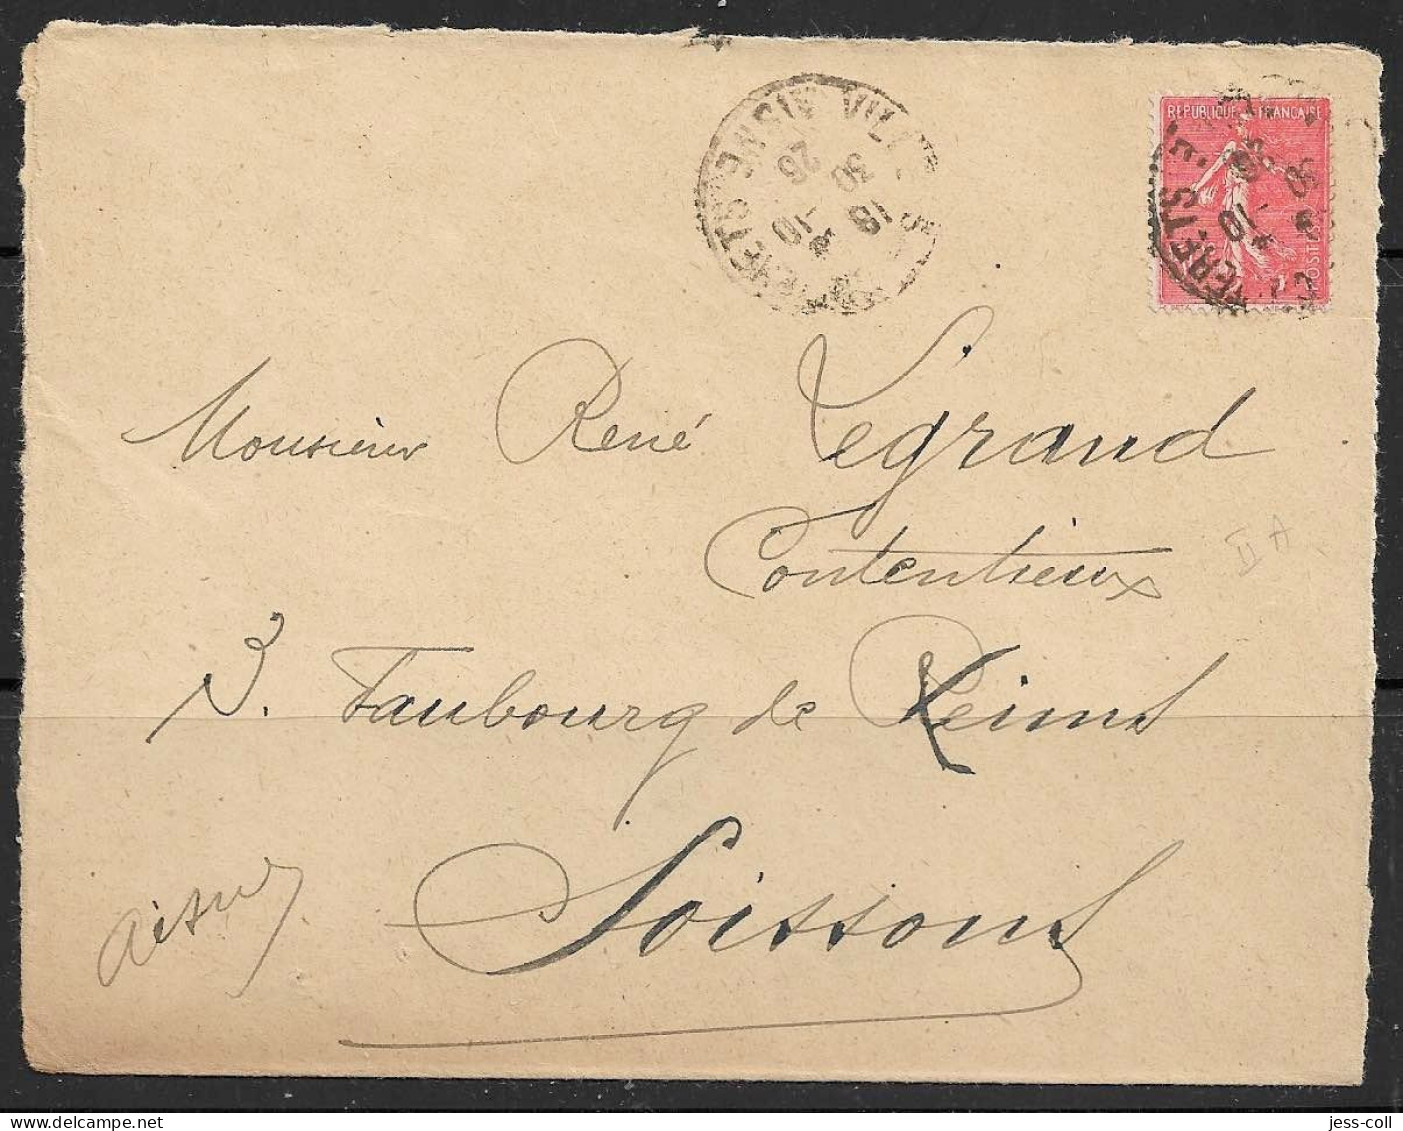 REPUBLIQUE FRANCAISE
POSTES
18 30
4 -10
25
AISNE
Monsieur René Legrand
Contentieux
II A
3. Faubourg de Reims
Soissons
Aisne
jess-coll